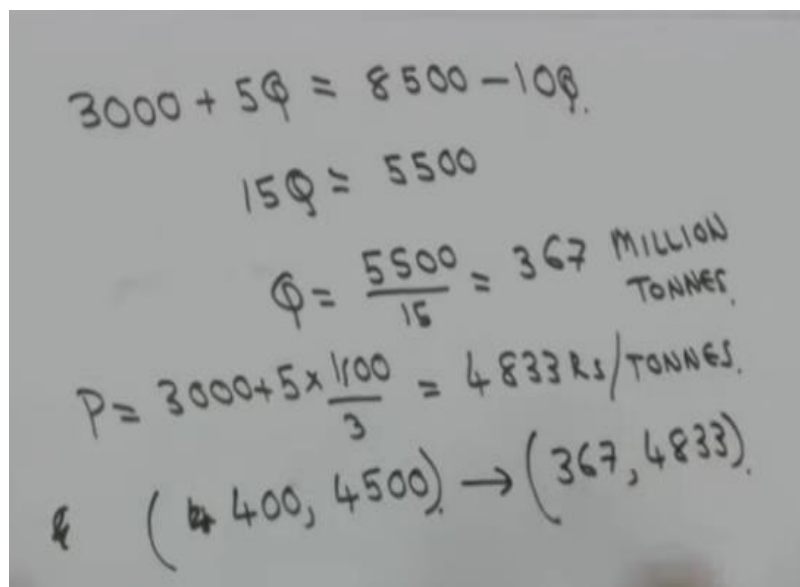 3000 + 5Q = 8500 - 10Q.
15Q = 5500
Q = 5500/15 = 367 MILLION TONNES.
P = 3000 + 5 × 1100/3 = 4833 Rs/TONNES.
(400, 4500). → (367, 4833).